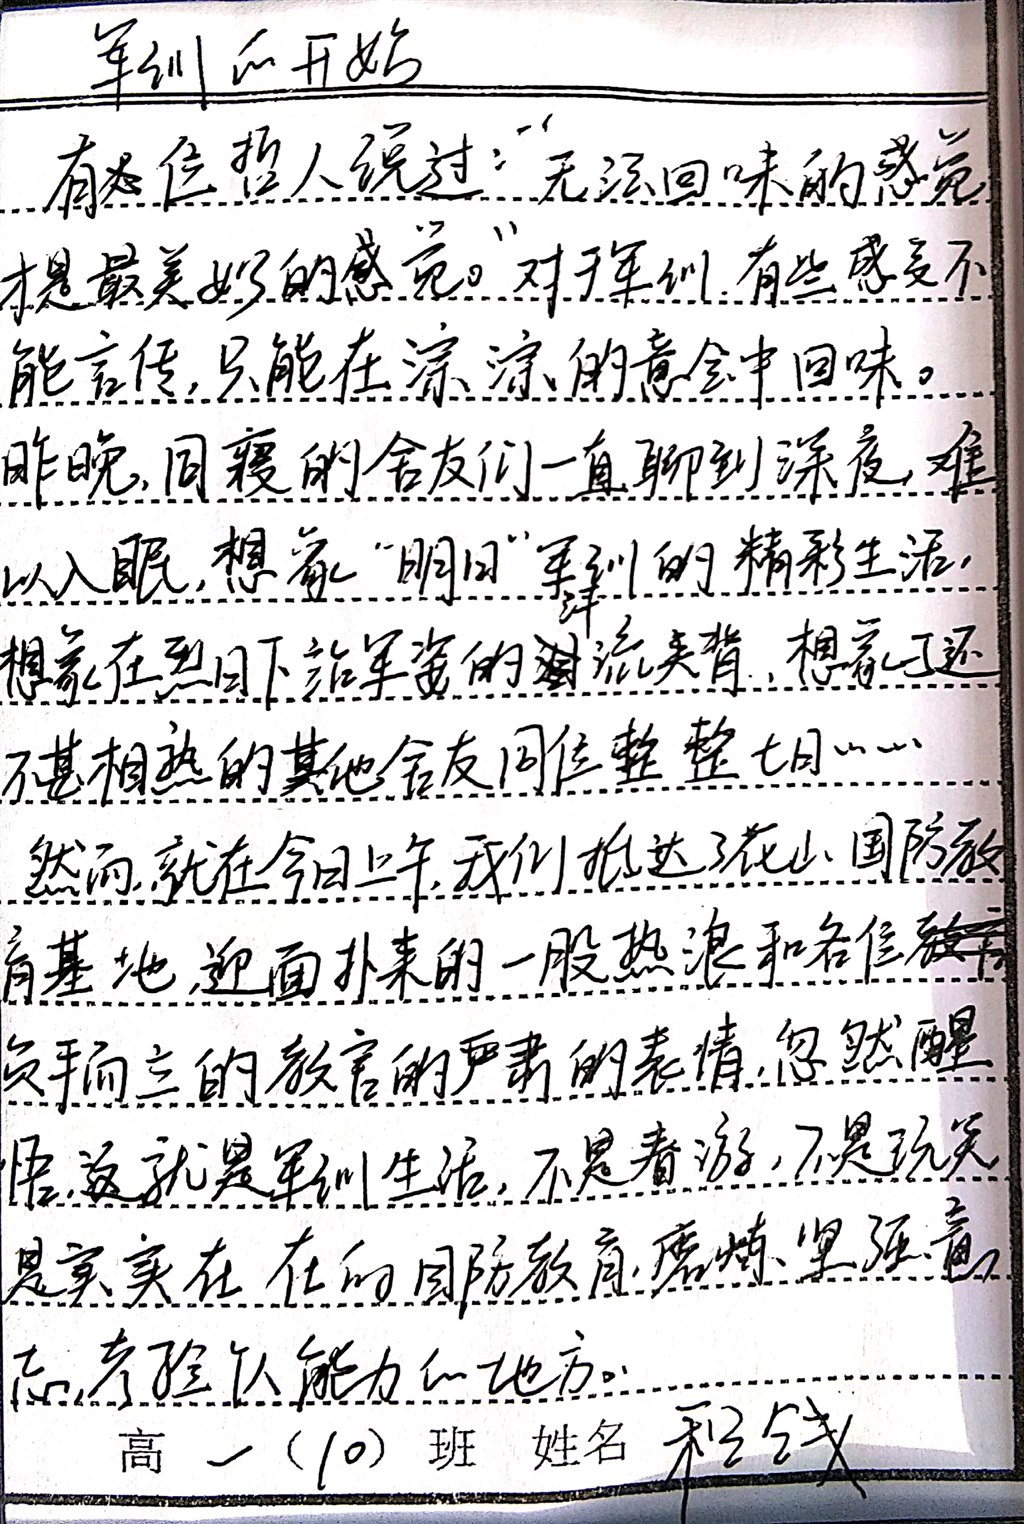 军训的开始
有一位哲人说过：“无法回味的感觉
才是最美好的感觉。”对于军训，有些感受不
能言传，只能在深深的意会中回味。
昨晚，同寝的舍友们一直聊到深夜，难
以入眠，想象“明日”军训的精彩生活，
想象在烈日下站军姿的汗流夹背，想象了还
不甚相熟的其他舍友同住整整七日……
然而，就在今日上午，我们抵达了花山国防教
育基地，迎面扑来的一股热浪和各位
负手而立的教官的严肃的表情，忽然醒
悟，这就是军训生活，不是春游，不是玩笑，
是实实在在的国防教育、磨炼坚强意
志，考验人能力的地方。
高一（10）班 姓名 程钱